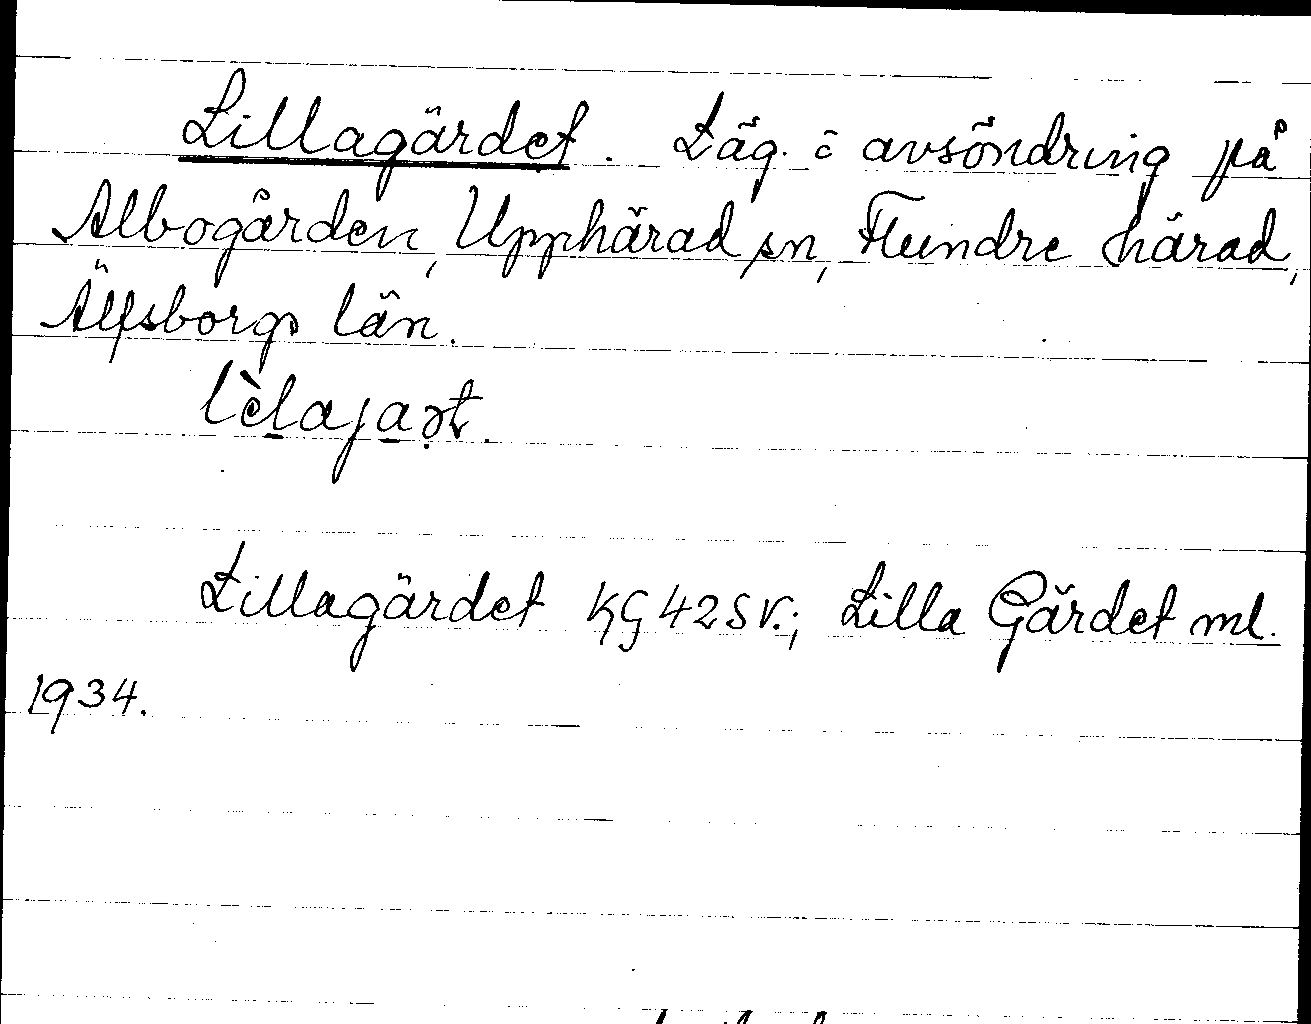 Lillagärdet. Läg. å avsöndring på
Albogården, Upphärad sn, Flundre härad,
Älfsborgs län.
Lillagärdet KG 42 SV.; Lilla Gärdet ml.
1934.